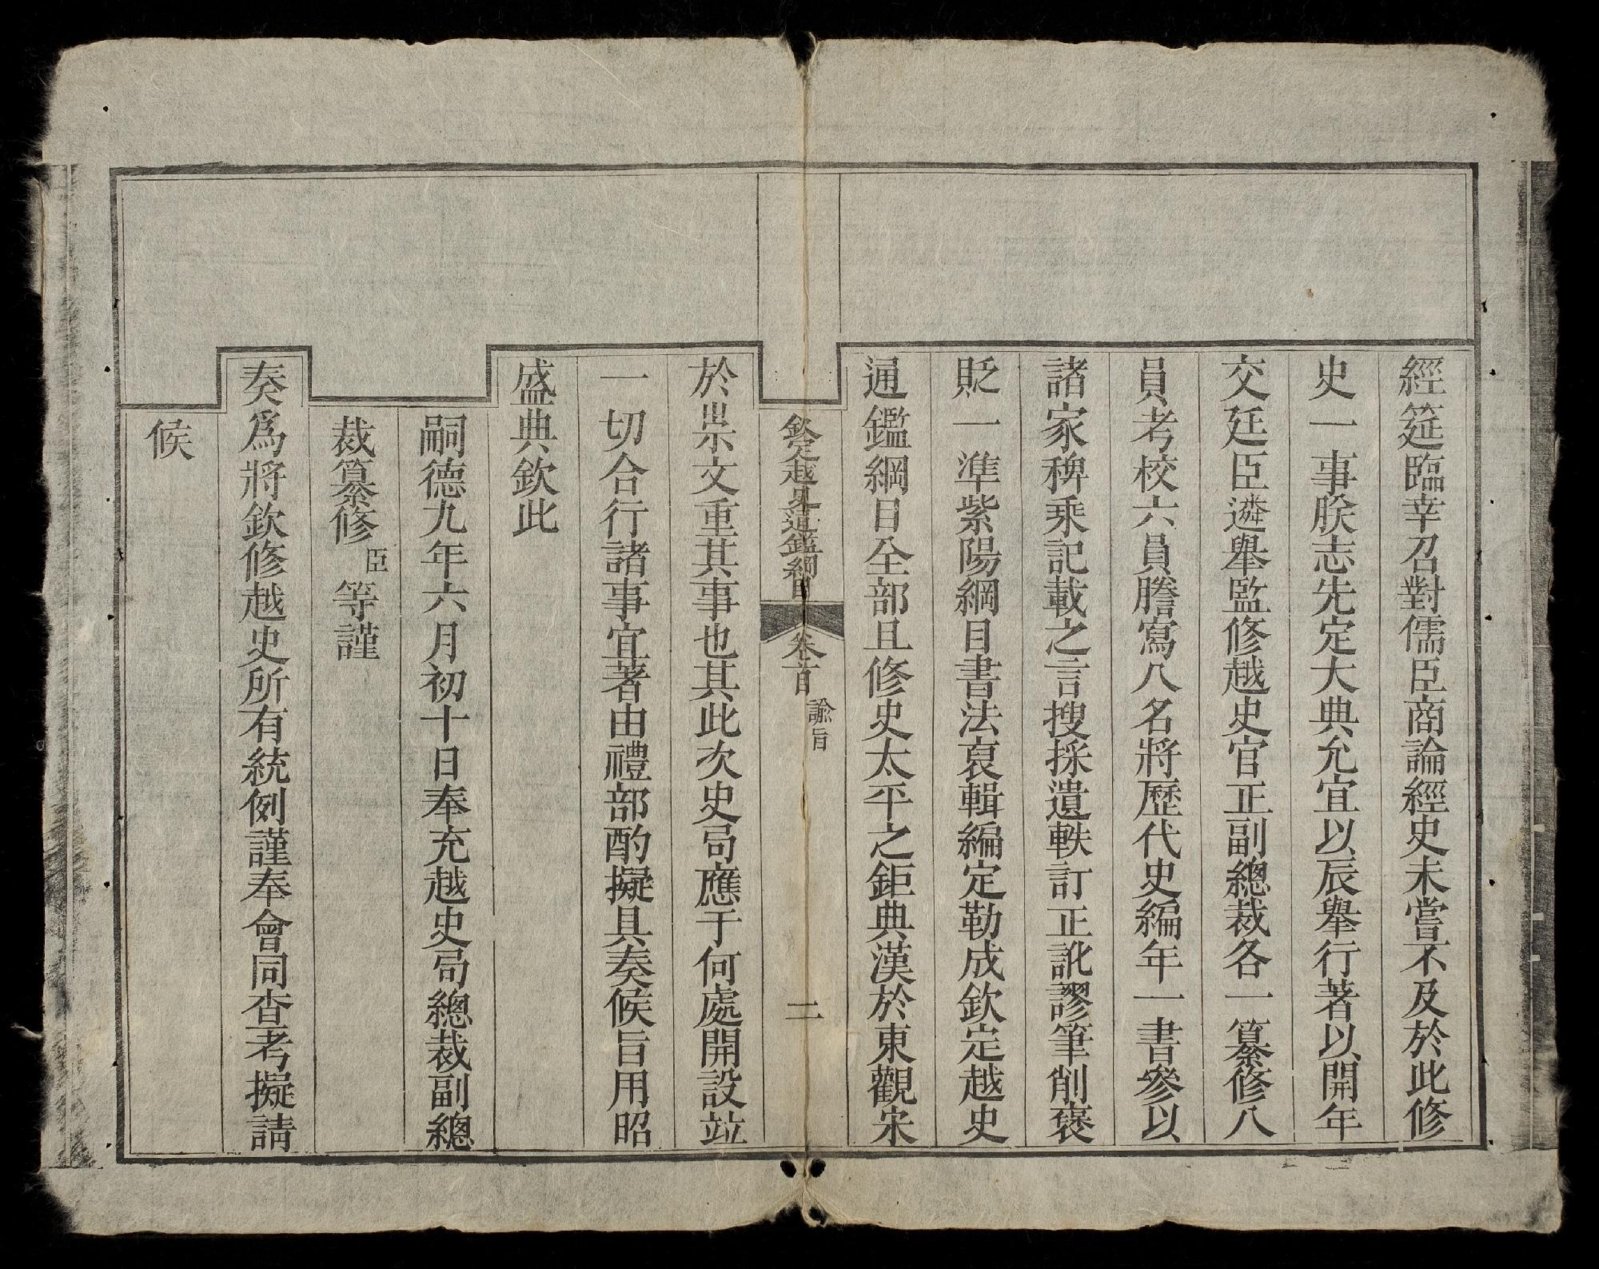 經筵臨幸召對儒臣商論經史未嘗不及於此修
史一事朕志先定大典允宜以辰舉行著以開年
交廷臣遴舉監修越史官正副總裁各一纂修八
員考校六員謄寫八名將歷代史編年一書參以
諸家稗乘記載之言搜採遺軼訂正訛謬筆削褒
貶一準紫陽綱目書法裒輯編定勒成欽定越史
通鑑綱目全部且修史太平之鉅典漢於東觀宋
欽定越史通鑑綱目 卷首 諭旨 二
於崇文重其事也其此次史局應于何處開設竝
一切合行諸事宜著由禮部酌擬具奏候旨用昭
盛典欽此
嗣德九年六月初十日奉充越史局總裁副總
裁纂修臣等謹
奏爲將欽修越史所有統例謹奉會同查考擬請
候